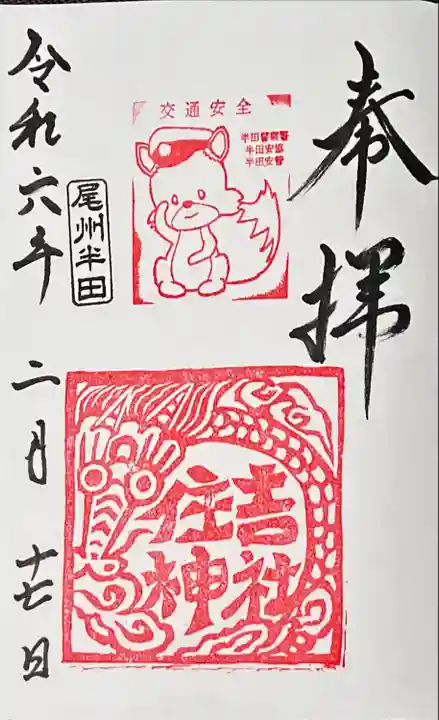 奉拝
交通安全
半田警察署
半田安協
半田安管
住吉
神社
尾州半田
令和六年二月十七日